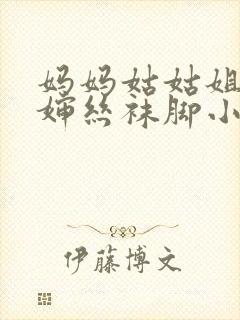 妈妈姑姑姐
婶丝袜脚小
伊藤博文